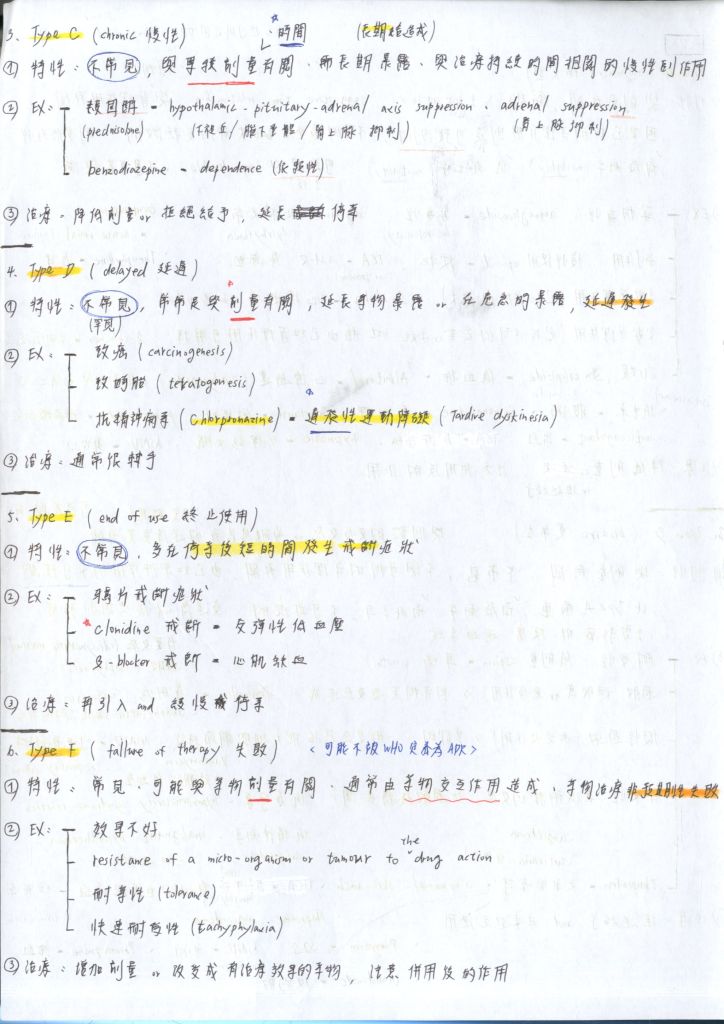 3. Type C (chronic 慢性) ☆ 時間 (長期給造成)
① 特性: 不常見, 與累積劑量有關、而長期暴露、與治療持續時間相關的慢性副作用
② EX: 類固醇 = hypothalamic-pituitary-adrenal axis suppression、adrenal suppression
(prednisolne) (下視丘/腦下垂體/腎上腺 抑制) (腎上腺抑制)
benzodiazepine = dependence (依賴性)
③ 治療 = 降低劑量 or 拒絕給予, 延長 停藥
4. Type D (delayed 延遲)
① 特性: 不常見, 常常是與劑量有關, 延長藥物暴露 or 在危急的暴露, 延遲發生
(罕見)
② EX: 致癌 (carcinogenesis)
致畸胎 (teratogenesis)
抗精神病藥 (Chlorpromazine) = 遲發性運動障礙 (Tardive dyskinesia)
③ 治療: 通常很棘手
5. Type E (end of use 終止使用)
① 特性: 不常見, 多在停藥後短時間發生戒斷症狀
② EX: 鴉片戒斷症狀
☆ clonidine 戒斷 = 反彈性低血壓
β-blocker 戒斷 = 心肌缺血
③ 治療: 再引入 and 緩慢 停藥
6. Type F (failure of therapy 失敗) <可能不被WHO歸為ADR>
① 特性: 常見、可能與藥物劑量有關、通常由藥物交互作用造成、藥物治療非預期性失敗
② EX: 效果不好
resistance of a micro-organism or tumour to the drug action
耐藥性 (tolerance)
快速耐受性 (tachyphylaxia)
③ 治療: 增加劑量 or 改變成有治療效果的藥物, 注意併用後的作用